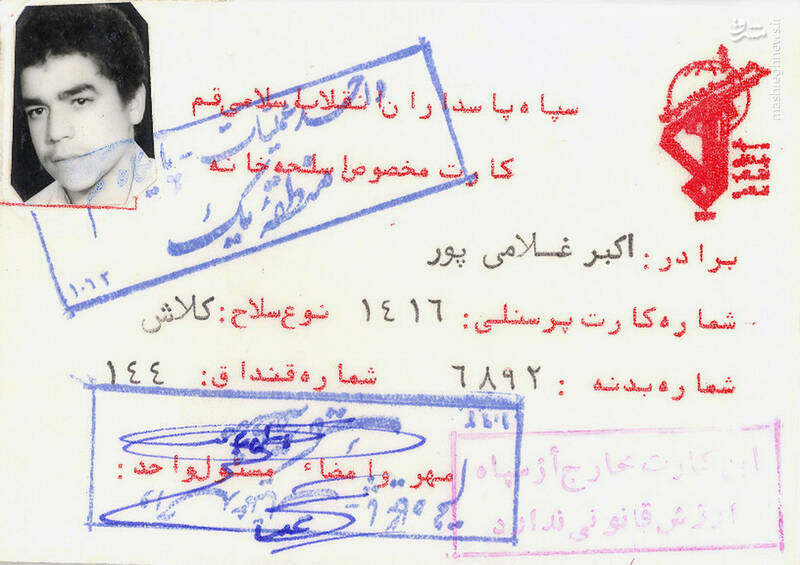 سپاه پاسداران انقلاب اسلامی قم
کارت مخصوص اسلحه خانه
برادر: اکبر غلامی پور
شماره کارت پرسنلی: ۱٤۱٦ نوع سلاح: کلاش
شماره بدنه : ٦۸۹۲ شماره قنداق: ۱٤٤
مهر و امضاء مسئول واحد:
واحد عملیات -
منطقهٔ یک
۱۰٦۲
این کارت خارج از سپاه
ارزش قانونی ندارد
mashreghnews.ir